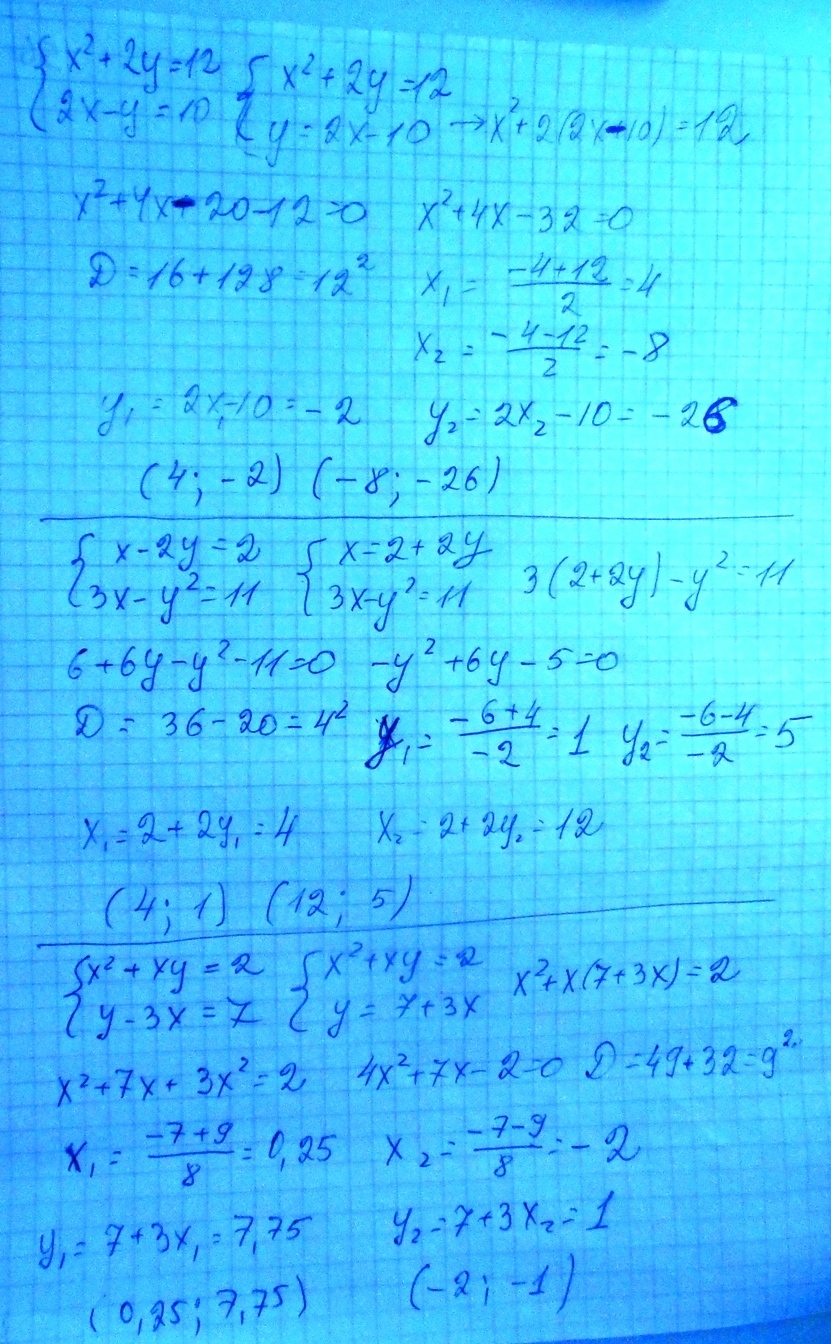 {x²+2y=12 {x²+2y=12
{2x-y=10 {y=2x-10 →x²+2(2x-10)=12
x²+4x-20-12=0 x²+4x-32=0
D=16+128=12² x₁=(-4+12)/2=4
x₂=(-4-12)/2=-8
y₁=2x₁-10=-2 y₂=2x₂-10=-26
(4; -2) (-8; -26)
{x-2y=2 {x=2+2y
{3x-y²=11 {3x-y²=11 3(2+2y)-y²=11
6+6y-y²-11=0 -y²+6y-5=0
D=36-20=4² y₁=(-6+4)/-2=1 y₂=(-6-4)/-2=5
x₁=2+2y₁=4 x₂=2+2y₂=12
(4; 1) (12; 5)
{x²+xy=2 {x²+xy=2 x²+x(7+3x)=2
{y-3x=7 {y=7+3x
x²+7x+3x²=2 4x²+7x-2=0 D=49+32=9²
x₁=(-7+9)/8=0,25 x₂=(-7-9)/8=-2
y₁=7+3x₁=7,75 y₂=7+3x₂=1
(0,25; 7,75) (-2; -1)